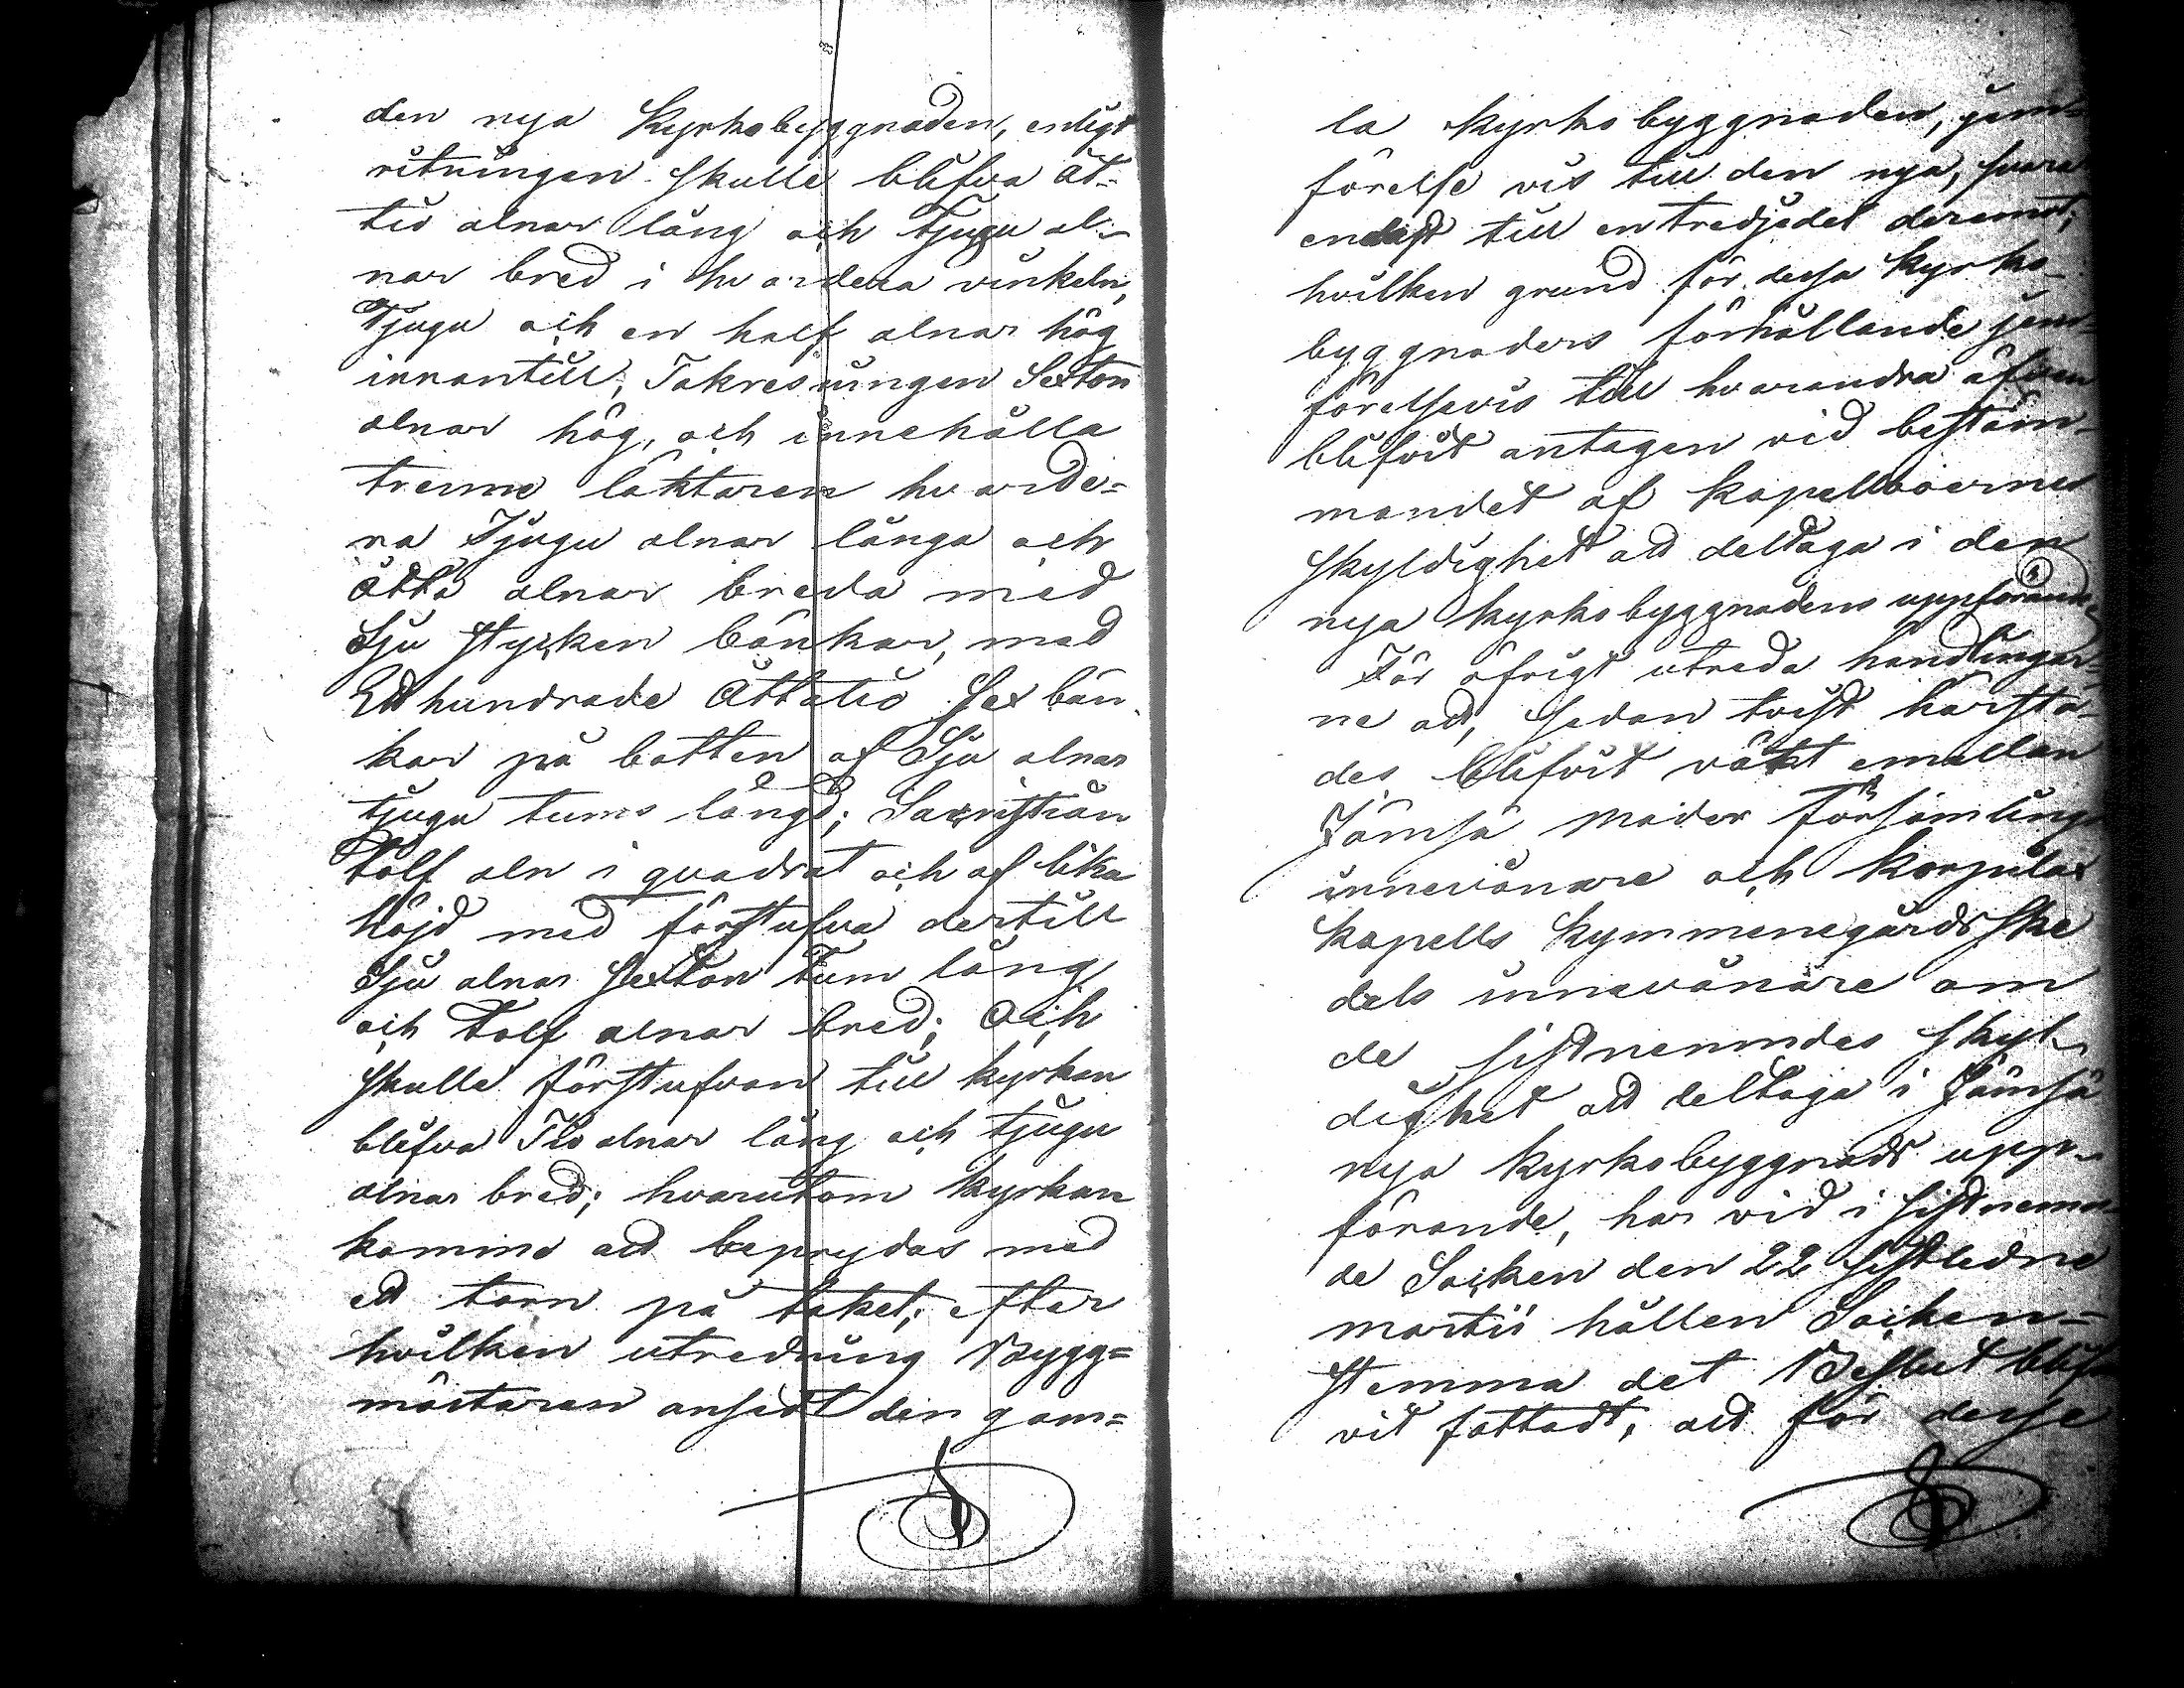 den nya Kyrkobyggnaden, enligt
ritningen skulle blifva åt-
tio alnar lång och Tjugu al-
nar bred i hvardera vinkeln,
Tjugu och en half alnar hög
innantill; Takresningen Sexton
alnar hög, och innehålla
trenne läktaren hvarde=
ra Tjugu alnar långa och
Åtta alnar breda med
Sju stycken bänkar, med
Ett hundrade Åttatio Sex bän-
kar på botten af Sju alnar
tjugu tums längd; Sacristian
Tolf aln i quadrat och af lika
höjd med förstufva dertill
Sju alnar Sexton Tum lång
och Tolf alnar bred; Och
skulle förstufvan till kyrkan
blifva Tio alnar lång och tjugu
alnar bred; hvarutom kyrkan
komme att beprydas med
ett torn på taket; efter
hvilken utredning Bygg=
mästaren ansedt den gam=
la kyrko byggnaden, jem-
förelse vis till den nya, svara
endast till en tredjedel deremot;
hvilken grund för dessa kyrko-
byggnaders förhållande jem-
förelsevis till hvarandra äfven
blifvit antagen vid bestäm-
mandet af Kapellboernes
skyldighet att deltaga i den
nya kyrkobyggnadens uppförande
För öfrigt utreda handlingar-
ne att, sedan tvist härstä-
des blifvit väkt emellan
Jämsä Moder Församlings
innevånare och Korpilax
Kapells Kymmenegårds Ske
dels innevånare om
de sistnemndes skyl-
dighet att deltaga i Jämsä
nya kyrkobyggnads upp-
förande, har vid i sistnemn-
de Socken den 22 sistledne
martii hållen Socken-
stemma det Beslut blif-
vit fattadt, att för desse